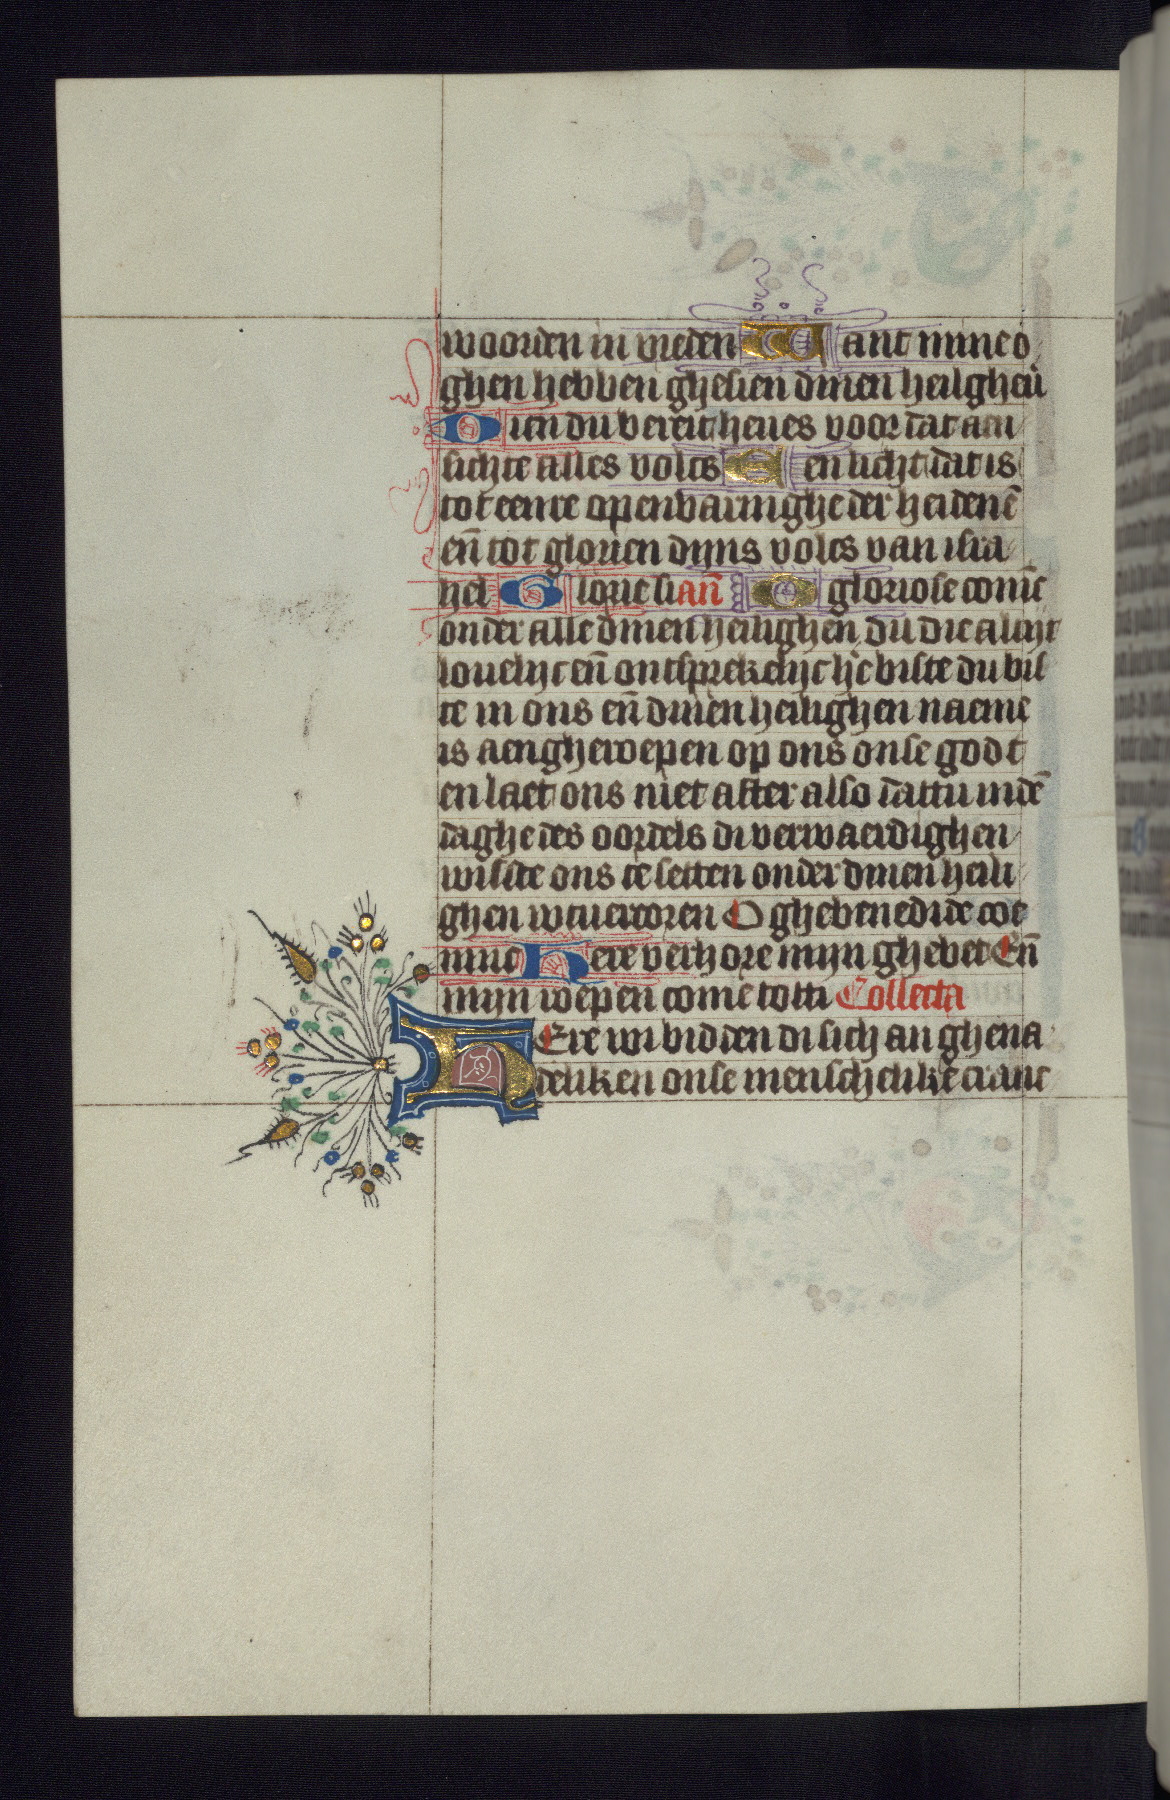 woorden in vreden Want mine o
ghen hebben ghesien dinen heilghen̄
Dien du bereit heues voor dat aen
sichte alles volcs Een licht dat is
tot eenre openbaringhe der heidenē
en̄ tot glorien dyns volcs van isra
hel Glorie si an̄ O gloriose coninc
onder alle dinen heilighen du die altijt
louelijc en̄ ontsprekelijc biste du bis
te in ons en̄ dinen heilighen naeme
is aengheroepen op ons onse godt
en laet ons niet after also dattu indē
daghe des oordels di verwaerdighen
wilste ons te setten onder dinen heili
ghen wtuercoren O ghebenedide coe
ninc Here verhore mijn ghebet En̄
mijn roepen come totti Collecta
HEre wi bidden di sich an ghena
deliken onse menschelike cranc